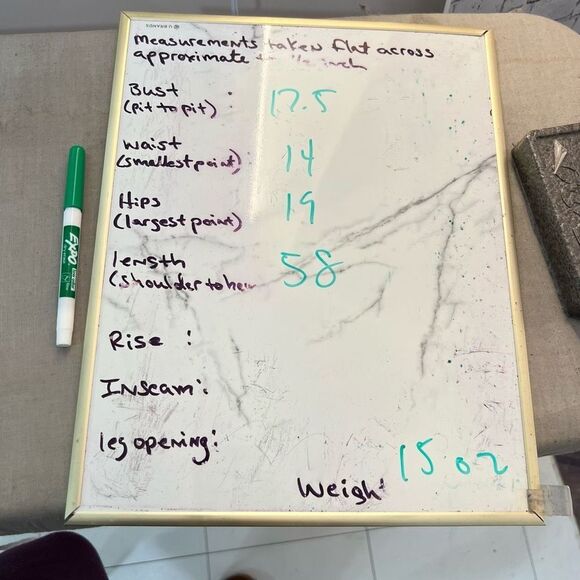 U BRANDS
Measurements taken flat across
approximate inch
Bust :
(pit to pit) 17.5
Waist
(smallest point) : 14
Hips
(largest point) 19
length
(shoulder to hem 58
Rise :
Inseam :
leg opening :
Weight 15 oz
EXPO